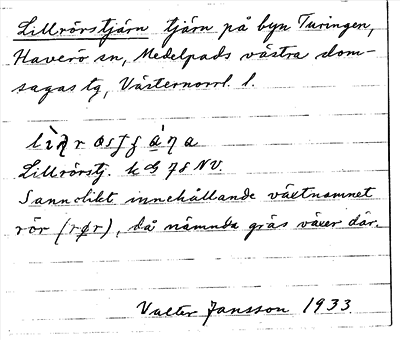 Lillrörstjärn tjärn på byn Turingen,
Haverö sn, Medelpads västra dom-
sagas tg, Västernorrl. l.
Lillrörstj. k G 78 NV.
Sannolikt innehållande växtnamnet
rör (rør), då nämnda gräs växer där.
Valter Jansson 1933